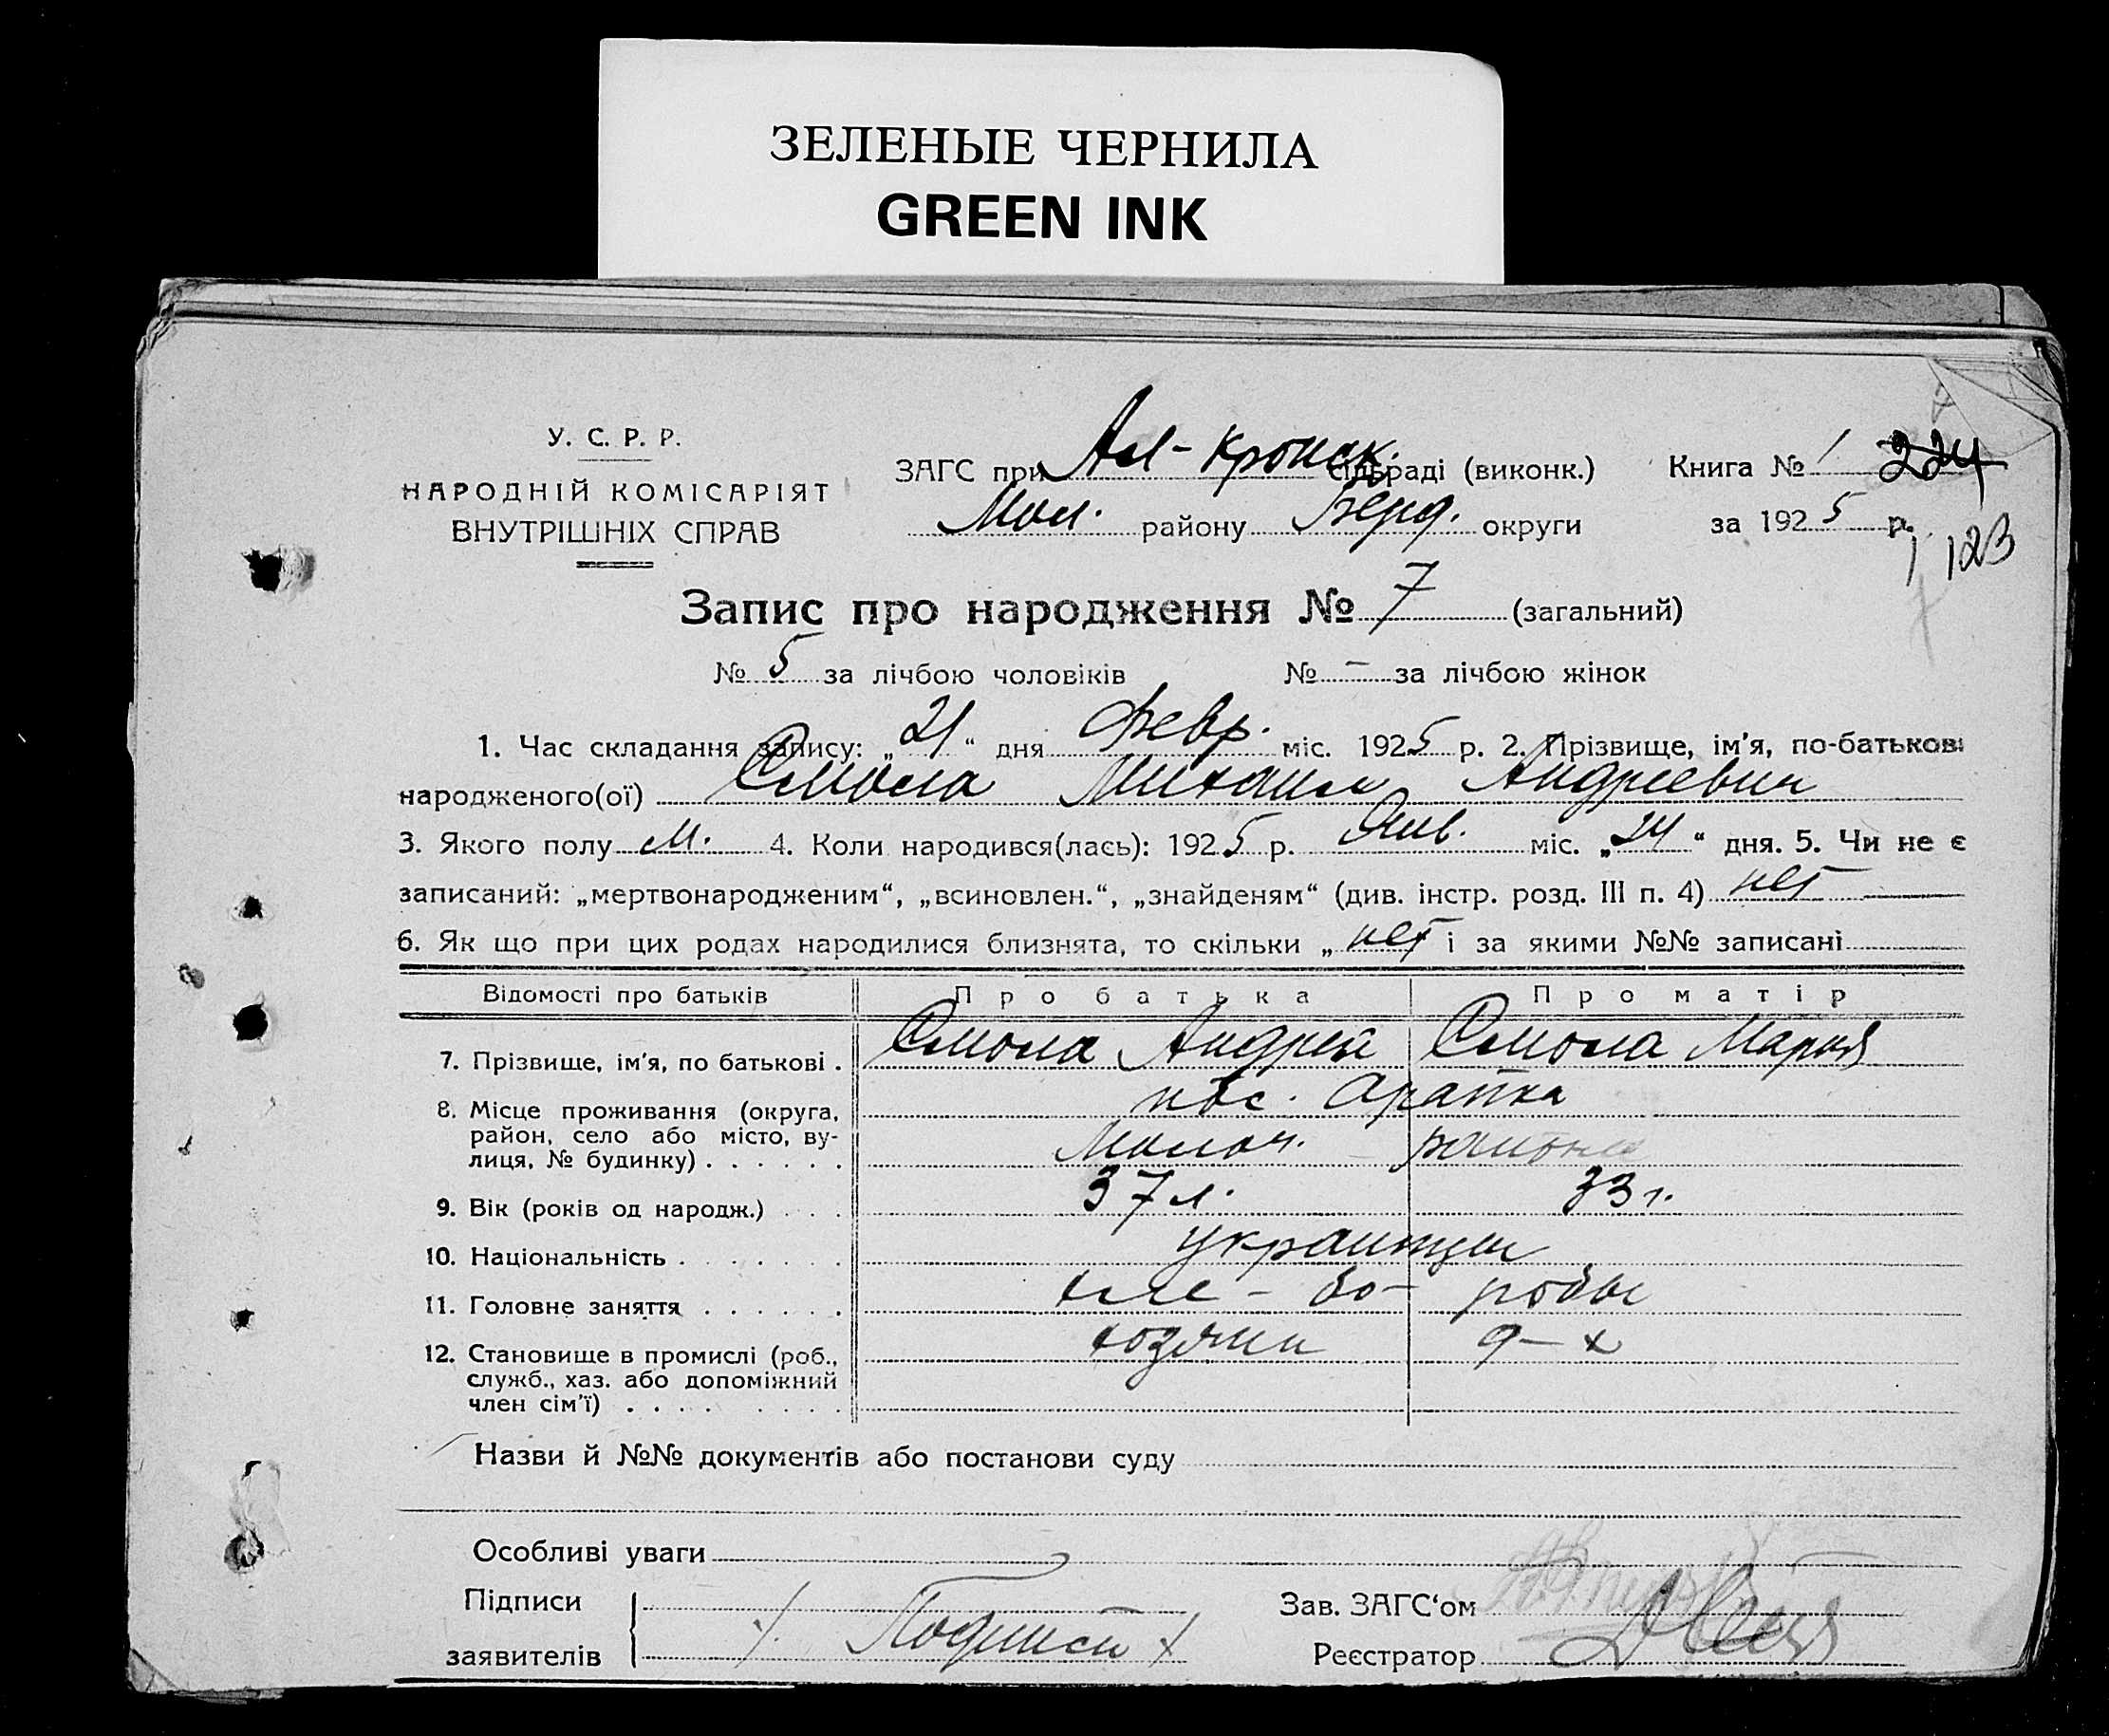 ЗЕЛЕНЫЕ ЧЕРНИЛА
GREEN INK
У. С. Р. Р.
НАРОДНІЙ КОМІСАРІЯТ
ВНУТРІШНІХ СПРАВ
ЗАГС при Ал-Кронск. сільраді (виконк.) Книга № 1 224
Мол. району Берд. округи за 1925 р.
123
Запис про народження № 7 (загальний)
№ 5 за лічбою чоловіків № – за лічбою жінок
1. Час складання запису: „21“ дня Февр. міс. 1925 р. 2. Прізвище, ім'я, по-батькові
народженого(ої) Смола Михаил Андреевич
3. Якого полу м. 4. Коли народився(лась): 1925 р. Янв. міс. „24“ дня. 5. Чи не є
записаний: „мертвонародженим“, „всиновлен.“, „знайденям“ (див. інстр. розд. III п. 4) нет
6. Як що при цих родах народилися близнята, то скільки „ нет і за якими №№ записані
Відомості про батьків Про батька Про матір
7. Прізвище, ім'я, по батькові . Смола Андрей Смола Мария
8. Місце проживання (округа, пос. Арапка
район, село або місто, ву-
лиця, № будинку) . . . . . . Молоч. района
9. Вік (років од народж.) . . . 37 л. 33 г.
10. Національність . . . . . . . украинцы
11. Головне заняття . . . . . . хле-бо-робы
12. Становище в промислі (роб., хозяин д-х
служб., хаз. або допоміжний
член сім'ї) . . . . . . . . .
Назви й №№ документів або постанови суду
Особливі уваги
Підписи Зав. ЗАГС‘ом
заявителів Подписи Реєстратор